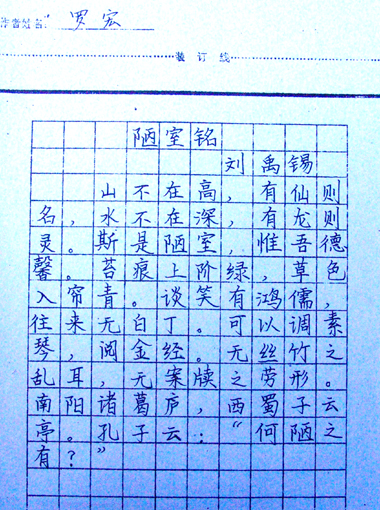 作者姓名: 罗宏
装订线
陋室铭
刘禹锡
山不在高，有仙则
名，水不在深，有龙则
灵。斯是陋室，惟吾德
馨。苔痕上阶绿，草色
入帘青。谈笑有鸿儒，
往来无白丁。可以调素
琴，阅金经。无丝竹之
乱耳，无案牍之劳形。
南阳诸葛庐，西蜀子云
亭。孔子云：“何陋之
有？”